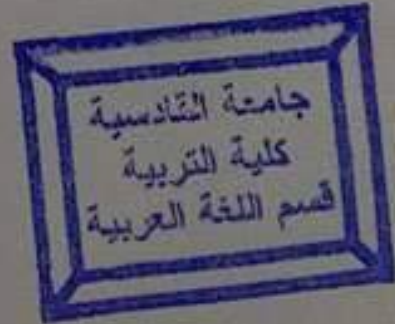 جامعة القادسية
كلية التربية
قسم اللغة العربية